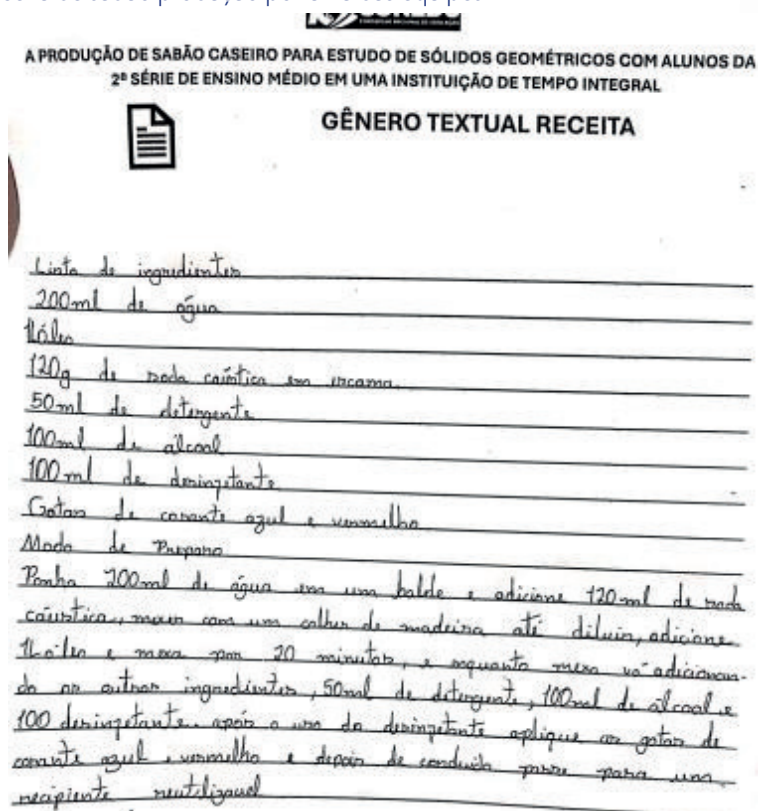 A PRODUÇÃO DE SABÃO CASEIRO PARA ESTUDO DE SÓLIDOS GEOMÉTRICOS COM ALUNOS DA
2ª SÉRIE DE ENSINO MÉDIO EM UMA INSTITUIÇÃO DE TEMPO INTEGRAL
GÊNERO TEXTUAL RECEITA
Lista de ingredientes
200ml de água
1L óleo
120g de soda caústica em escama
50ml de detergente
100ml de álcool
100ml de desinzetante
Gotas de corante azul e vermelho
Modo de Preparo
Ponha 200ml de água em um balde e adicione 120ml de soda
caústica, mexer com um colher de madeira até diluir, adicione
1L óleo e mexa por 20 minutos, e enquanto mexa vá adicionan-
do os outros ingredientes, 50ml de detergente, 100ml de álcool e
100 desinzetante. após o uso do desinzetante aplique as gotas de
corante azul e vermelho e depois de passe para um
recipiente reutilizavel